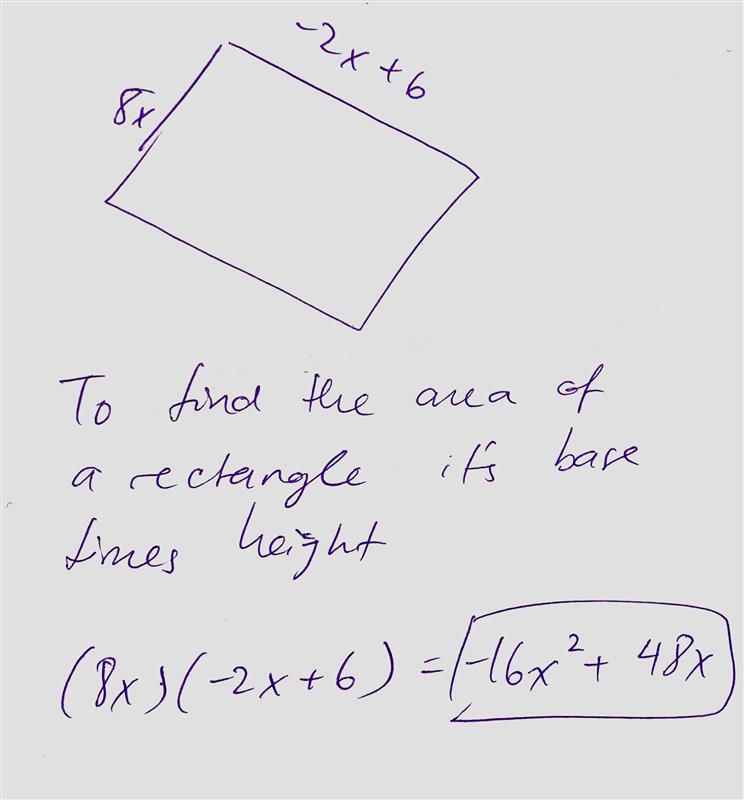 -2x+6
8x
To find the area of
a rectangle it's base
times height
(8x)(-2x+6) = -16x²+ 48x